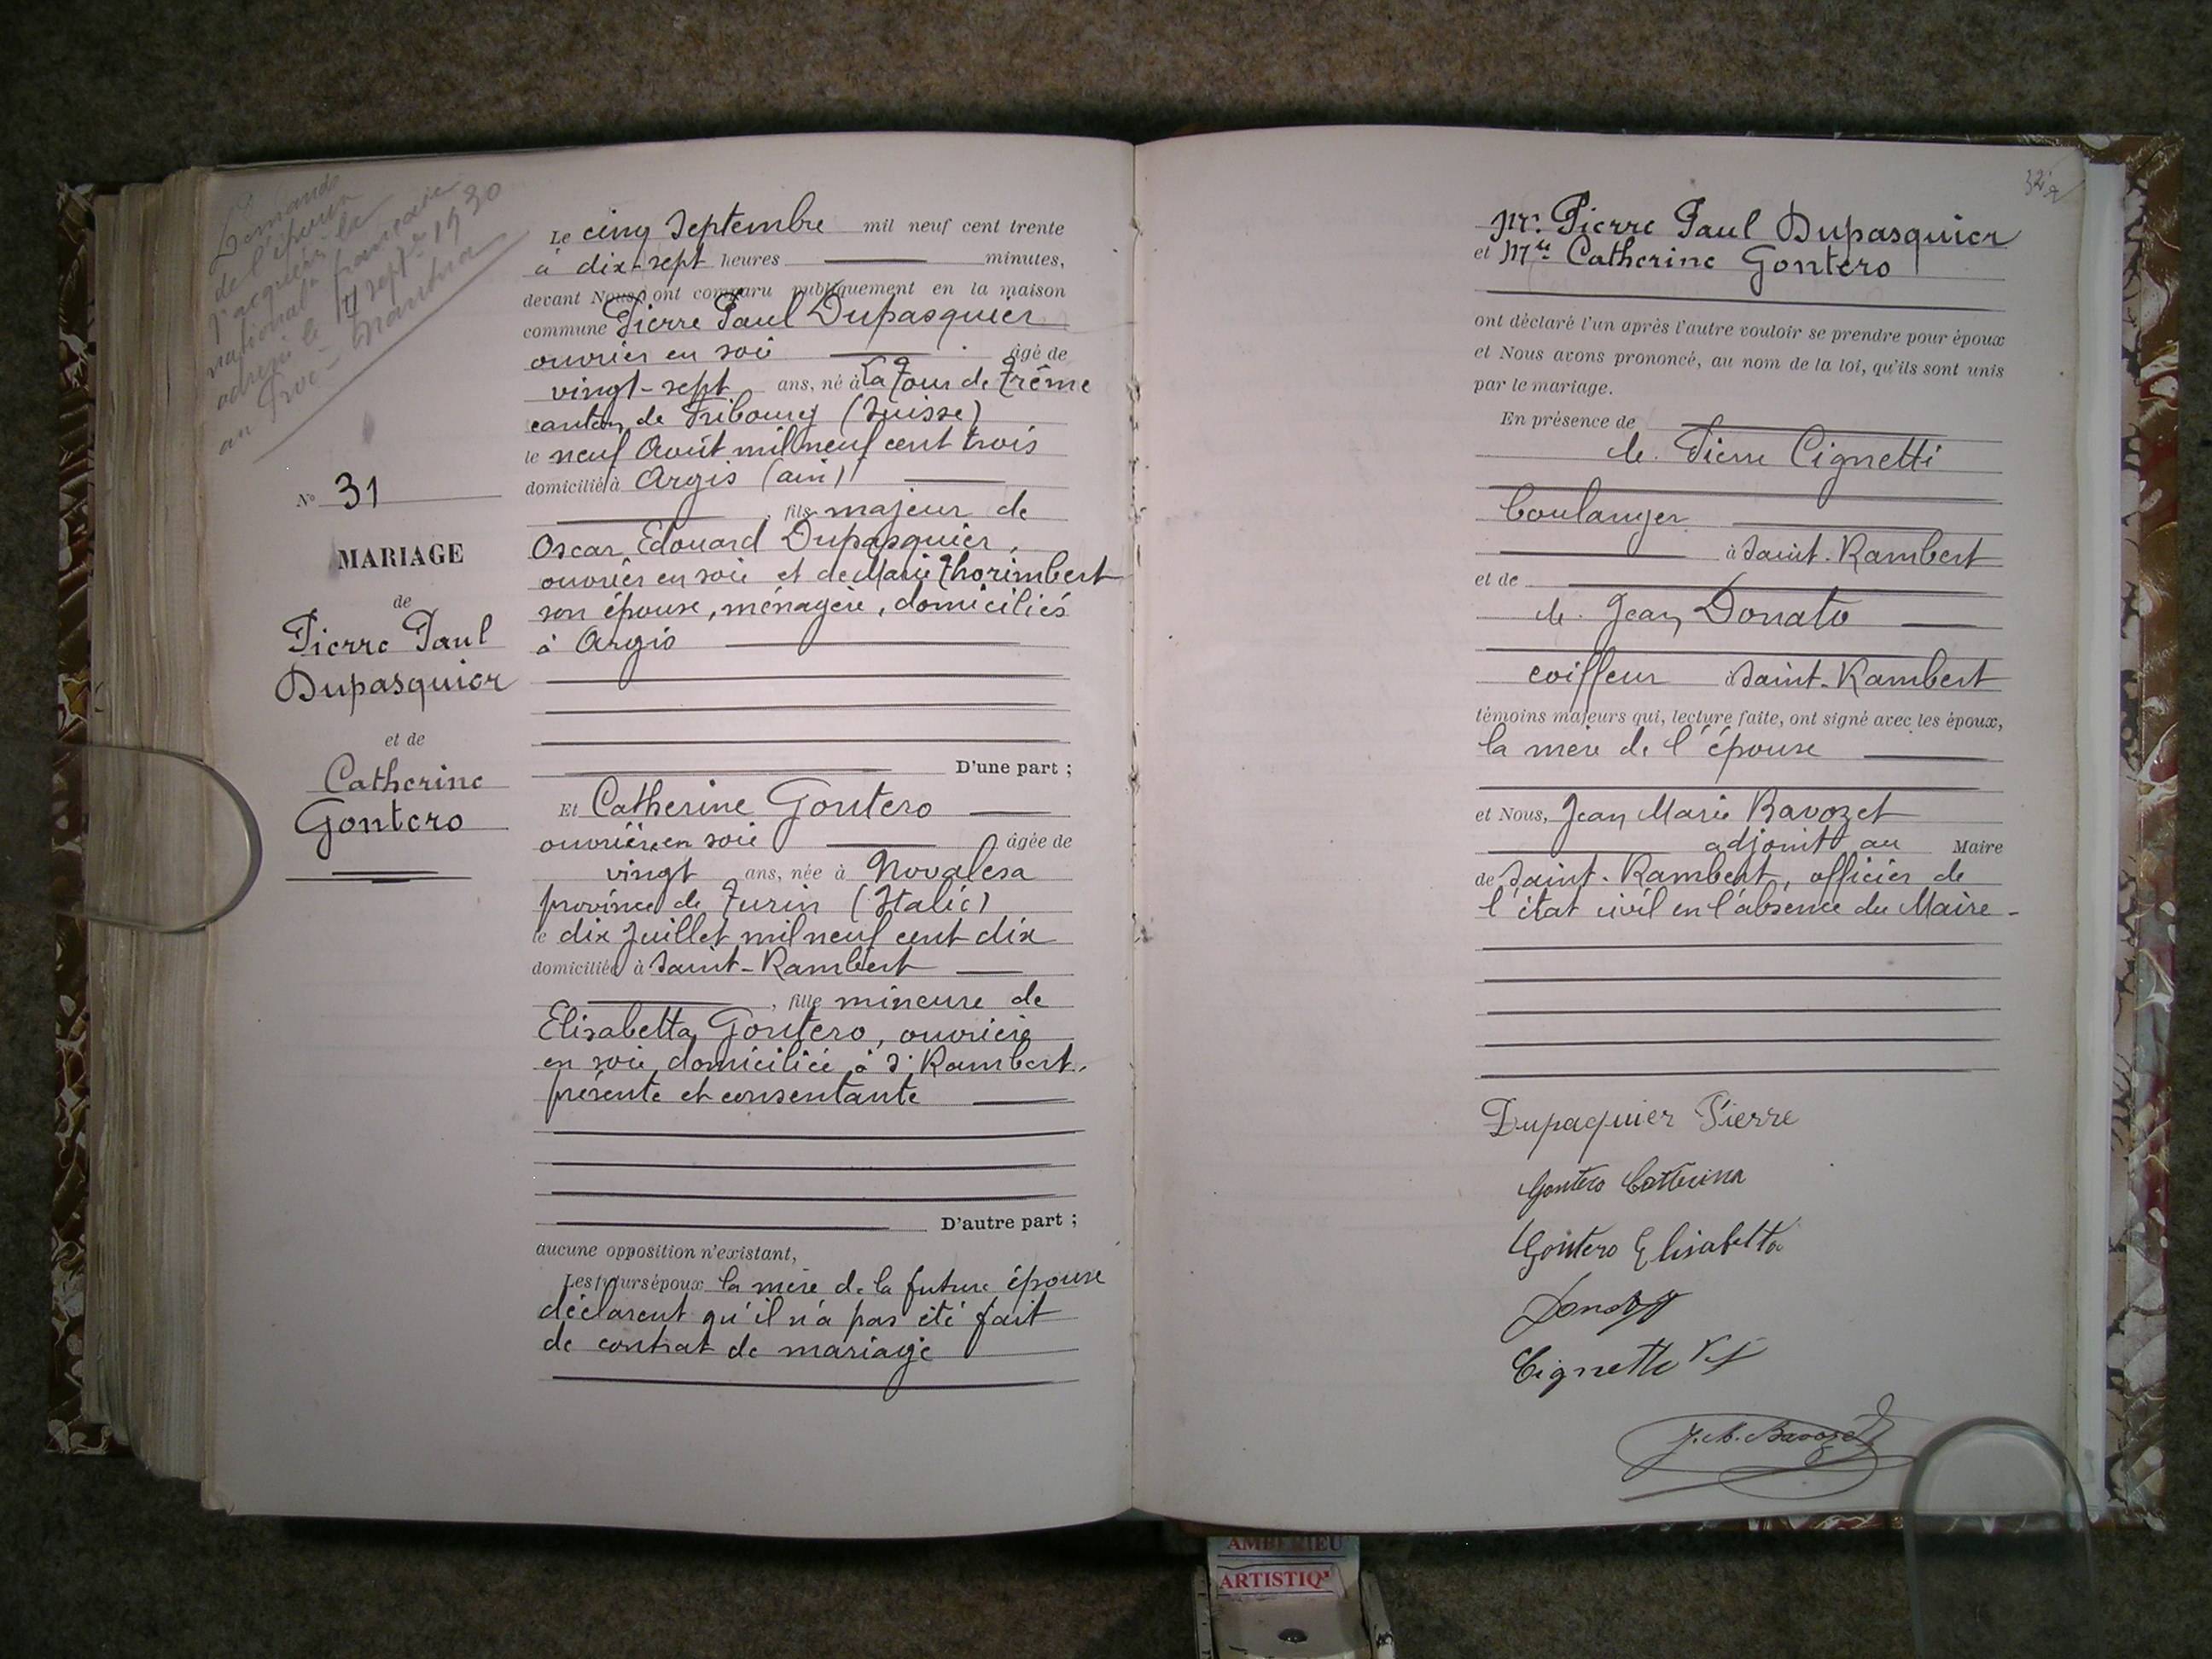 Demande
de l'épouse
d'acquérir la
national. française
adressée le 17 sept. 1930
au Proc. Nantua
N° 31
MARIAGE
de
Pierre Paul
Dupasquier
et de
Catherine
Gontero
Le cinq Septembre mil neuf cent trente
à dix-sept heures minutes,
devant Nous ont comparu publiquement en la maison
commune Pierre Paul Dupasquier
ouvrier en soie âgé de
vingt-sept ans, né à La Tour de Trême
canton de Fribourg (Suisse)
le neuf Août mil neuf cent trois
domicilié à Argis (ain)
, fils majeur de
Oscar Edouard Dupasquier,
ouvrier en soie et de Marie Thorimbert
son épouse, ménagère, domiciliés
à Argis
D'une part ;
Et Catherine Gontero
ouvrière en soie âgée de
vingt ans, née à Novalesa
province de Turin (Italie)
le dix Juillet mil neuf cent dix
domiciliée à Saint-Rambert
, fille mineure de
Elisabetta Gontero, ouvrière
en soie domiciliée à St Rambert,
présente et consentante
D'autre part ;
aucune opposition n'existant,
Les futurs époux la mère de la future épouse
déclarent qu'il n'a pas été fait
de contrat de mariage
32
Mr. Pierre Paul Dupasquier
et Mlle Catherine Gontero
ont déclaré l'un après l'autre vouloir se prendre pour époux
et Nous avons prononcé, au nom de la loi, qu'ils sont unis
par le mariage.
En présence de
de Pierre Cignetti
boulanger
à Saint-Rambert
et de
de Jean Donato
coiffeur à Saint-Rambert
témoins majeurs qui, lecture faite, ont signé avec les époux,
la mère de l'épouse
et Nous, Jean Marie Bavozet
adjoint au Maire
de Saint-Rambert, officier de
l'état civil en l'absence du Maire -
Dupaquier Pierre
Gontero Catterina
Gontero Elisabetta
Donato
Cignetti
J. M. Bavozet
AMBERIEU
ARTISTIQ